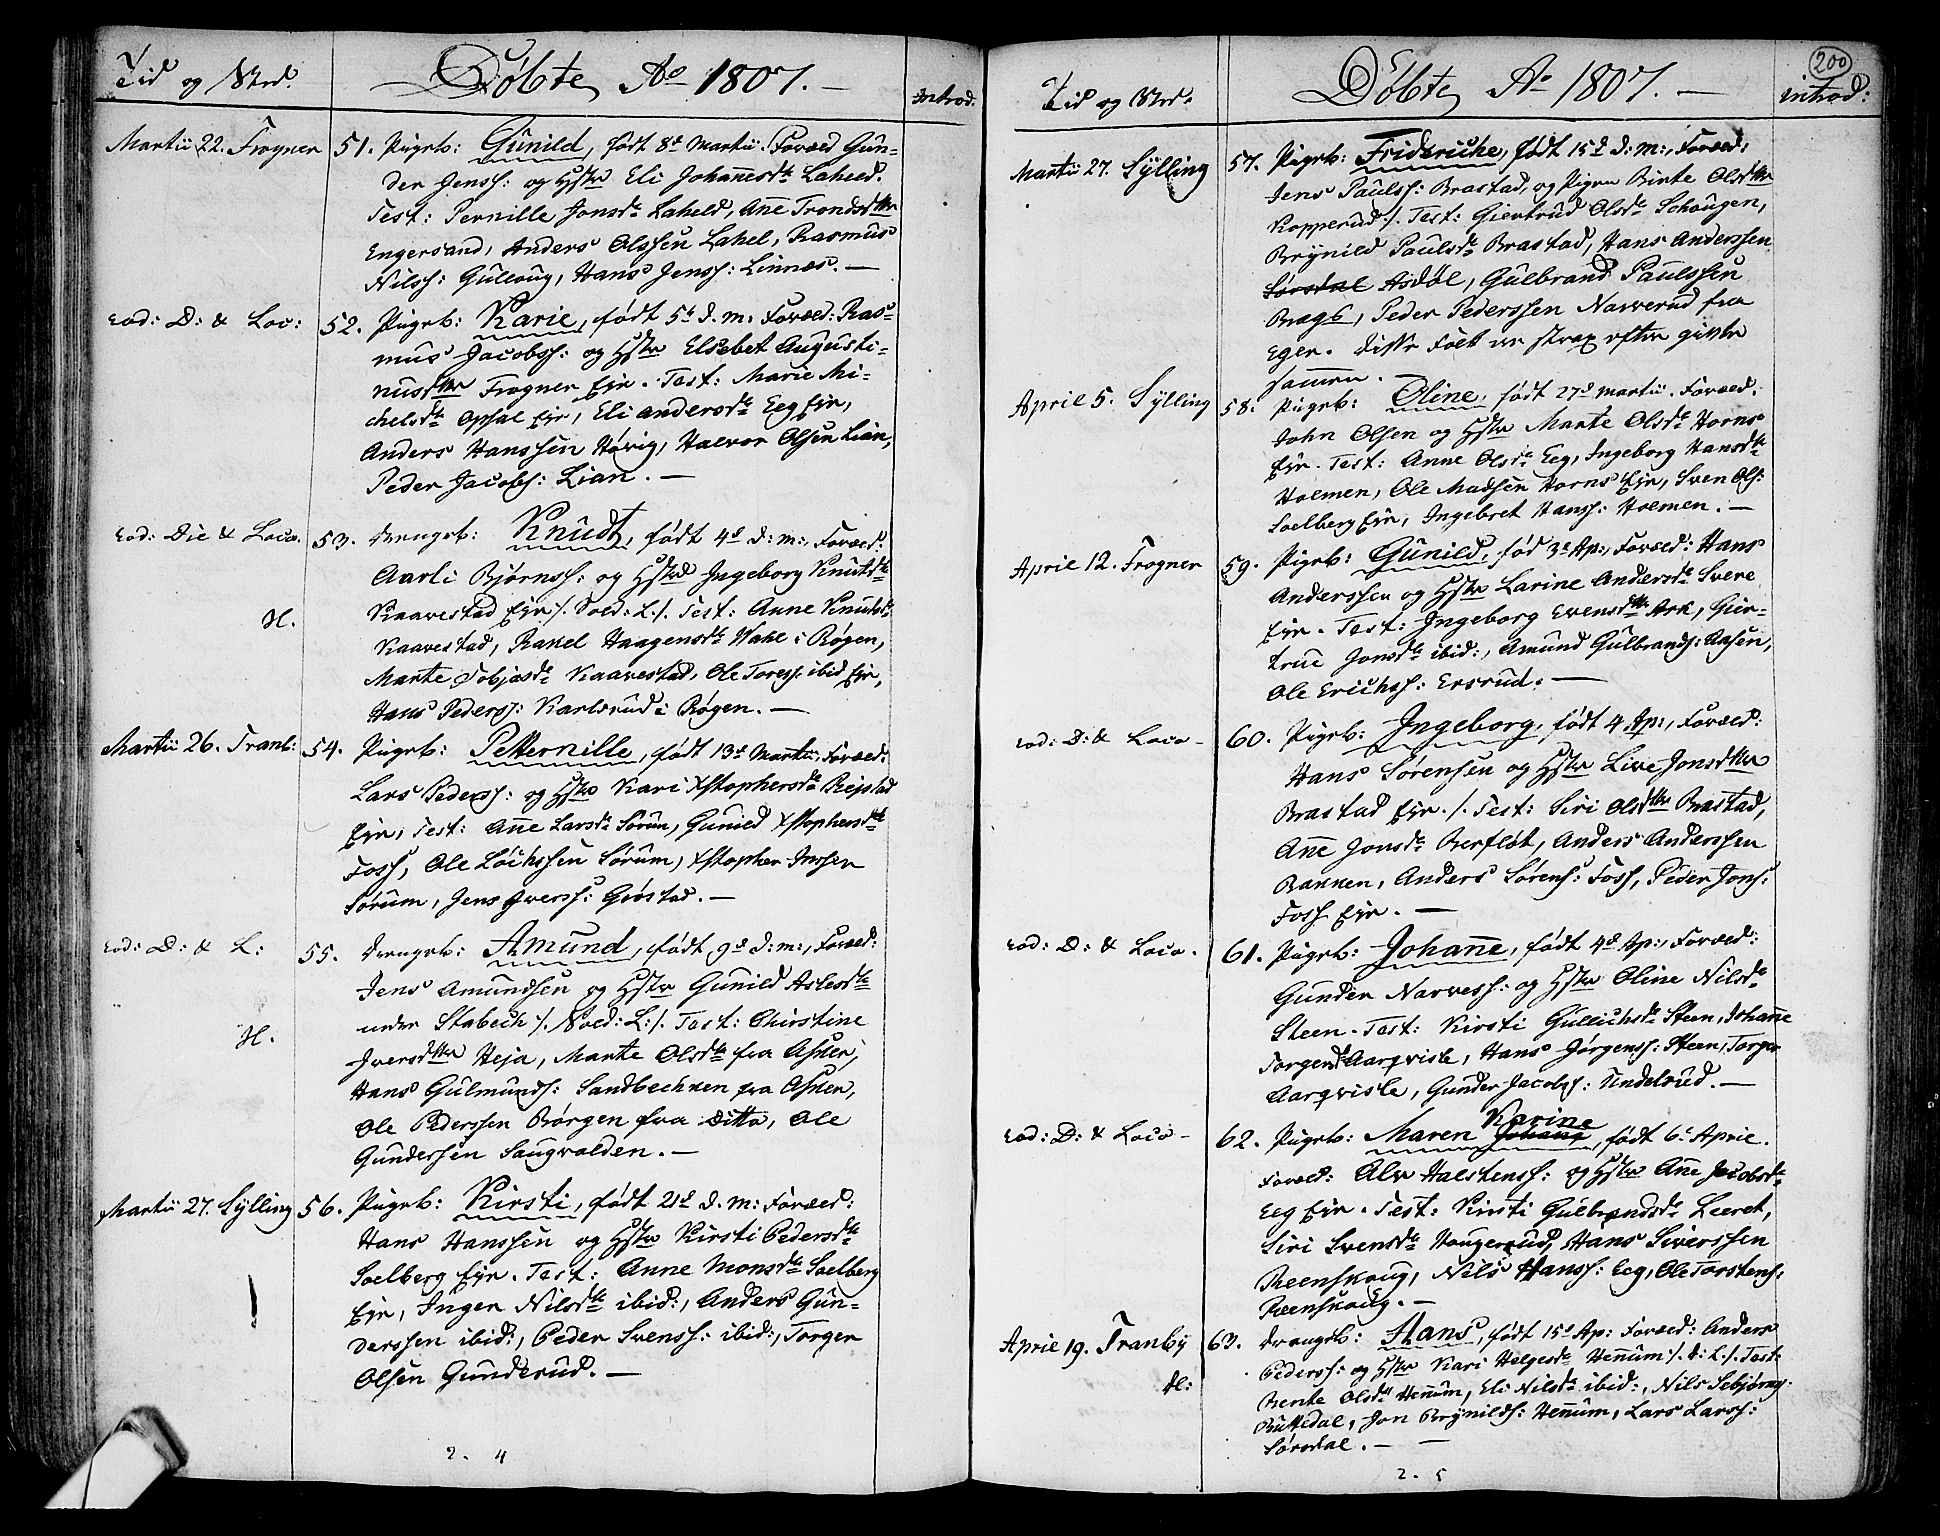 Tid og Sted. Döbte Aº 1807. — Introd.
Martii 22. Frogner 51. Pigeb: Gunild, født 8d Martii. Foræld Gun-
der Jenss: og Hstr Eli Johannesdtr Laheld.
Test: Pernille Jonsdr Laheld, Ane Trondsdttr
Engersand, Anders Olssen Lahel, Rasmus
Nilss: Gulloug, Hans Jenss: Linnes. —
eod: D: & Loc: 52. Pigeb: Karie, født 5t d. m: Foræld: Ras-
mus Jacobss: og Hstr Elsebet Augusti-
nusdttr Frogner Eje. Test: Marie Mi-
chelsdr Opsal Eje, Eli andersdr Eeg Eje,
Anders Hanssen Hövig, Halvor Olsen Lian,
Peder Jacobs: Lian. —
eod: Die & Loco. 53. Drengeb: Knudt, født 4d d: m:, Foræld:
Aarli Bjørnss: og Hstr Ingeborg Knutsdr
H. Kaavestad Eje /. Sold: L./. Test: Anne Knutsdr
Kaavestad, Rakel Haagensdr Wahl i Røgen,
Marte Tobjasdr Kaavestad, Ole Toress: ibid Eje,
Hans Pederss: Karlsrud i Røgen. —
Martii 26. Tranb: 54. Pigeb: Petternille, født 13d Martii, Foræld:
Lars Pederss: og Hstr Kari Xstophersdr Rejstad
Eje, Test: Ane Larsdr Sørum, Gunild Xstophersdtr
Foss, Ole Löchssen Sørum, Xstopher Jnssen
Sørum, Jens Jverss: Gröstad. —
eod: D: & L: 55. Drengeb: Amund, født 9d d: m:, Foræld:
Jens Amundsen og Hstr Gunild Aslesdtr
under Stabech /. Nved: L:/. Test: Chirstine
H. Jversdttr Heja, Marte Olsdtr fra Asker,
Hans Gulmunds: Sandbechken fra Asker,
Ole Pederssen Børgen fra Ditto, Ole
Gunderssen Saugvolden. —
Martii 27. Sylling 56. Pigeb: Kirsti, født 21d d. m: Foræld:
Hans Hanssen og Hstr Kirsti Pedersdtr
Solberg Eje. Test: Anne Monsdr Solberg
Eje, Inger Nilsdtr ibid:, Anders Gun-
derssen ibid:, Peder Svenss: ibid:, Torger
Olsen Gunderud. —
2. 4
200
Tid og Sted. Döbte Aº 1807. — introd:
Martii 27. Sylling 57. Pigeb: Fridericke, født 15d d: m:, Foræld:
Jens Paulss: Brastad, og Pigen Birte Olsdttr
Kopperud /. Test: Giertrud Olsdr Schougen,
Brynild Paulsdr Brastad, Hans Anderssen
Sørsdal Asdøl, Gulbrand Paulssen
Brage, Peder Pederssen Narverud fra
Eger. Disse Folk er strax efter givte
sammen. —
April 5. Sylling 58. Pigeb: Oline, født 27d martii. Foræld:
John Olsen og Hstr Marte Olsdr Horns
Eje. Test: Anne Olsdr Eeg, Ingeborg Hansdtr
Holmen, Ole Madsen Horns Eje, Sven Ols:
Solberg Eje, Ingebret Hanss: Holmen. —
April 12. Frogner 59. Pigeb: Gunild, fød 3d Ap:, Foræld: Hans
Anderssen og Hstr Larine Andersdr Svere
Eje. Test: Ingeborg Evensdttr Ark, Gier-
true Jonsdr ibid:, Amund Gulbrands: Aasen,
Ole Erichss: Ersrud. —
eod: D: & Loco — 60. Pigeb: Ingeborg, født 4 Ap:, Foræld:
Hans Sørensen og Hstr Live Jonsdttr
Brastad Eje. /. Test: Siri Olsdttr Brastad,
Ane Jonsdr Berfløt, Anders Anderssen
Bakken, Anders Sørens: Foss, Peder Jons:
Foss Eje. —
eod: D: & Loco. 61. Pigeb: Johanne, født 4d Ap:, Foræld:
Gunder Narvess: og Hstr Oline Nilsdr
Steen. Test: Kirsti Gullichsdr Steen, Johanne
Torgersdr Aarqvisle, Hans Jørgenss: Steen, Torger
Aarqvisle, Gunder Jacobss: Undelrud. —
eod: D: & Loco — 62. Pigeb: Maren Karine Johane, født 6t April.
Foræld: Alv Halstenss: og Hstr Ane Jacobsdr
Eeg Eje. Test: Kirsti Gulbrandsdr Leeret,
Siri Svensdr Haugerud, Hans Siverssen
Reenskoug, Nils Hanss: Eeg, Ole Torstens:
Reenskoug. —
April 19. Tranby 63. Drengeb: Hans, født 15d Ap: Foræld: Anders
H: Pederss: og Hstr Kari Helgesdr Hennum /. d: L./. Test:
Bente Olsdtr Hennum, Eli Nilsdr ibid:, Nils Sebjørns:
Buttedal, Jon Brynilds: Hennum, Lars Larss:
Sørsdal. —
2. 5